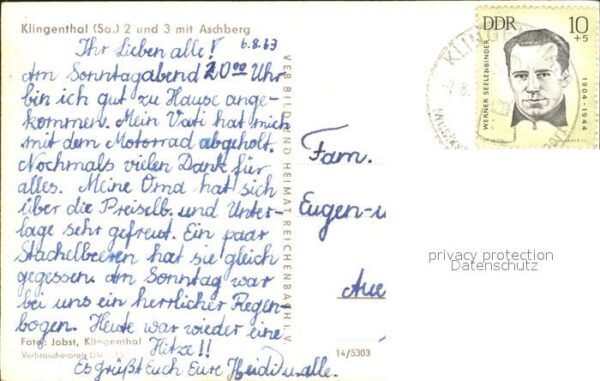 Klingenthal (Sa.) 2 und 3 mit Aschberg
Ihr Lieben alle! 6.8.63
Am Sonntagabend 20 00 Uhr
bin ich gut zu Hause ange-
kommen. Mein Vati hat mich
mit dem Motorrad abgeholt.
Nochmals vielen Dank für
alles. Meine Oma hat sich
über die Preiselb. und Unter-
lage sehr gefreut. Ein paar
Stachelbeeren hat sie gleich
gegessen. Am Sonntag war
bei uns ein herrlicher Regen-
bogen. Heute war wieder eine
Hitze!!
Es grüßt Euch Eure Heidi u. alle.
Foto: Jobst, Klingenthal
Verbraucherpreis
14/5303
VEB BILD UND HEIMAT REICHENBACH I. V.
Fam.
Eugen-
Aue
DDR 10
+5
WERNER SEELENBINDER
1904-1944
KLING
privacy protection
Datenschutz